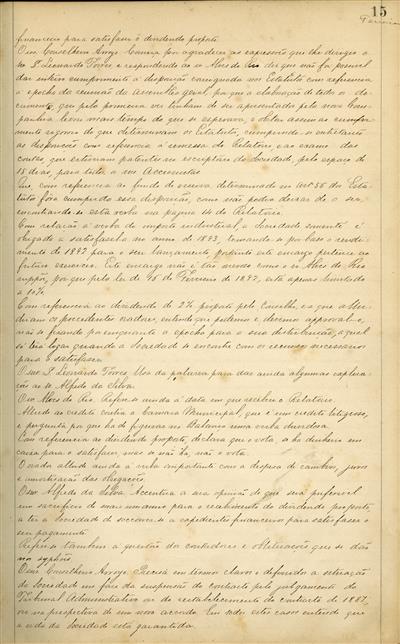 15
financeiro para satisfazer o dividendo proposto
O Exmo Conselheiro Arroyo Correia por agradecer as expressões que lhe dirigiu o
Sr. Leonardo Torres e respondendo ao Sr. Alves do Rio diz que não foi possivel
dar inteiro cumprimento á disposição consignada nos Estatutos com referencia
a epocha da reunião da assemblea geral, por que a elaboração de todos os do-
cumentos, que pela primeira vez tinham de ser apresentados pela nova Com-
panhia levou mais tempo do que se esperava, e obter assim as
rigoroso do que determinavam os Estatutos, cumprindo-se entretanto
as disposições com referencia á remessa do Relatorio e ao exame das
contas que estiveram patentes no escriptorio da Sociedade, pelo espaço de
15 dias, para todos os seus Accionistas
Que, com referencia ao fundo de reserva determinado no art 58 dos Esta-
tutos fôra cumprida essa disposição, como não podia deixar de o ser,
encontrando-se esta verba na pagina 14 do Relatorio.
Com relação á verba de imposto industrial, a Sociedade sómente é
obrigada a satisfazel-a no anno de 1893, tomando-se por base o rendi-
mento de 1892 para o seu lançamento, portanto este encargo pertence ao
futuro exercicio. Este encargo não é tão elevado como o Sr Alves do Rio
suppõe, por que pela lei de 28 de Fevereiro de 1892, está apenas limitado
a 10%
Com referencia ao dividendo de 2% proposto pelo Conselho, e a que allu-
diram os precedentes oradores, entende que podemos e devemos approval-o,
não se fixando por emquanto a epocha para a sua distribuição, a qual
só terá lugar quando a Sociedade se encontre com os recursos necessarios
para o satisfazer.
O Sr. Leonardo Torres Usa da palavra para dar ainda algumas explica-
ções ao Sr. Alfredo da Silva.
O Sr. Alves do Rio. Refere-se ainda á data em que recebeu o Relatorio.
Allude ao credito contra a Camara Municipal, que é um credito litigioso,
e pergunta por que ha de figurar no Balanço uma verba duvidosa.
Com referencia ao dividendo proposto, declara que o vota, se ha dinheiro em
caixa para o satisfazer, mas se não ha, não o vota.
O orador allude ainda a verba importante com a despeza de cambios, juros
e amortisação das obrigações
O Sr. Alfredo da Silva. Accentua a sua opinião de que será preferivel
um sacrificio de mais um anno para o recebimento do dividendo proposto,
a ter a Sociedade de soccorrer-se a expedientes financeiros para satisfazer o
seu pagamento.
Refere-se tambem á questão dos contadores e obliterações que se dão
nos syphões.
O Exmo Conselheiro Arroyo. Precisa em termos claros e definidos a situação
da Sociedade em face da suspensão do contracto pelo julgamento do
Tribunal Administrativo ou do restabelecimento do contracto de 1887,
ou na perspectiva de um novo accordo. Em todos estes casos entende que
a vida da Sociedade está garantida.